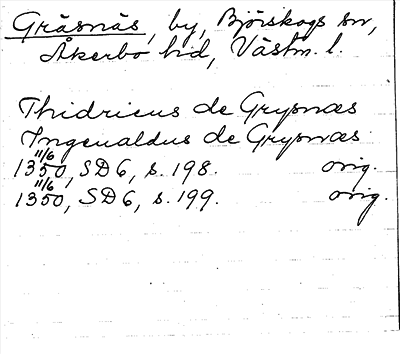 Gräsnäs, by, Björskogs sn,
Åkerbo hd, Västm. l.
Thidricus de Grysnæs
Ingeualdus de Grysnæs
11/6
1350, SD6, s. 198. orig.
11/6
1350, SD6, s. 199. orig.